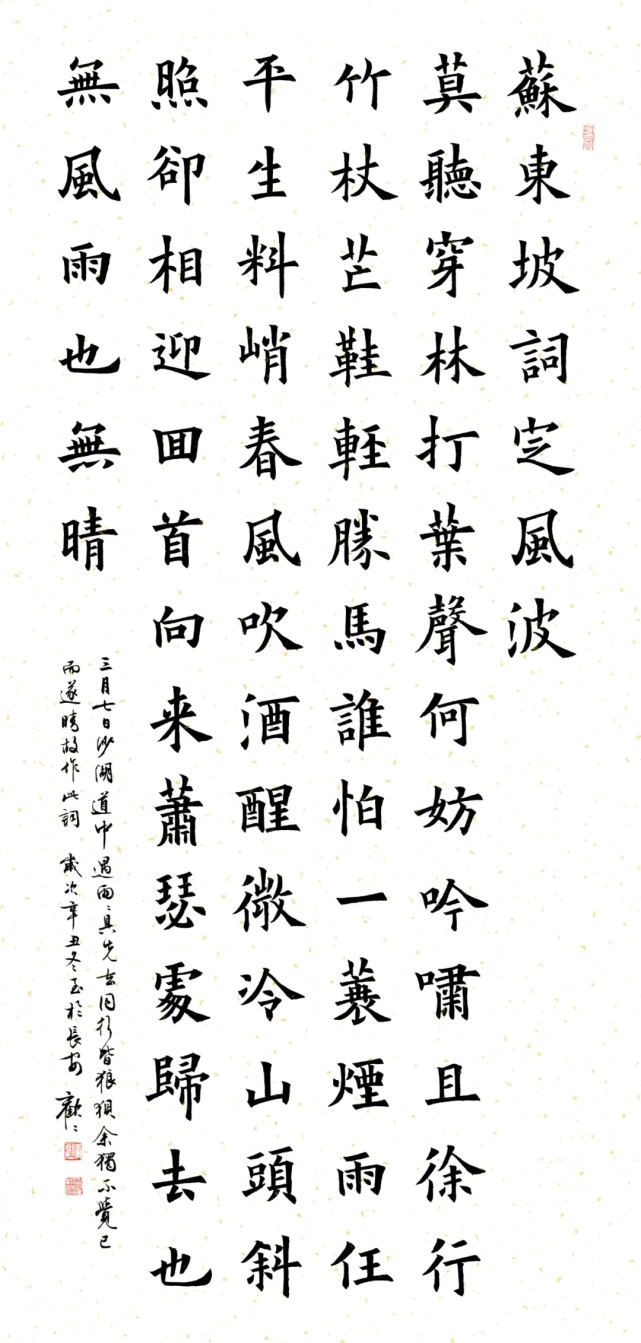 蘇東坡詞定風波
莫聽穿林打葉聲何妨吟嘯且徐行
竹杖芒鞋輕勝馬誰怕一蓑煙雨任
平生料峭春風吹酒醒微冷山頭斜
照卻相迎囬首向来蕭瑟處歸去也
無風雨也無晴
三月七日沙湖道中遇雨〻具先去同行皆狼狽余獨不覺已
而遂晴故作此詞 歲次辛丑冬至於長安 歡〻